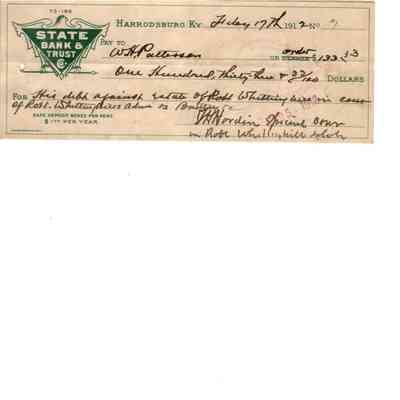 73-166
HARRODSBURG KY. Feby 17th 1912 No. 7
STATE
BANK &
TRUST
Co.
PAY TO W.H. Patterson order OR BEARER $ 133
One Hundred, thirty three & DOLLARS
FOR His debt against estate of Robt Whittinghill in
of Robt. Whittinghill Admr vs
SAFE DEPOSIT BOXES FOR RENT
$1.00 PER YEAR
Special Com
in Robt Whittinghill